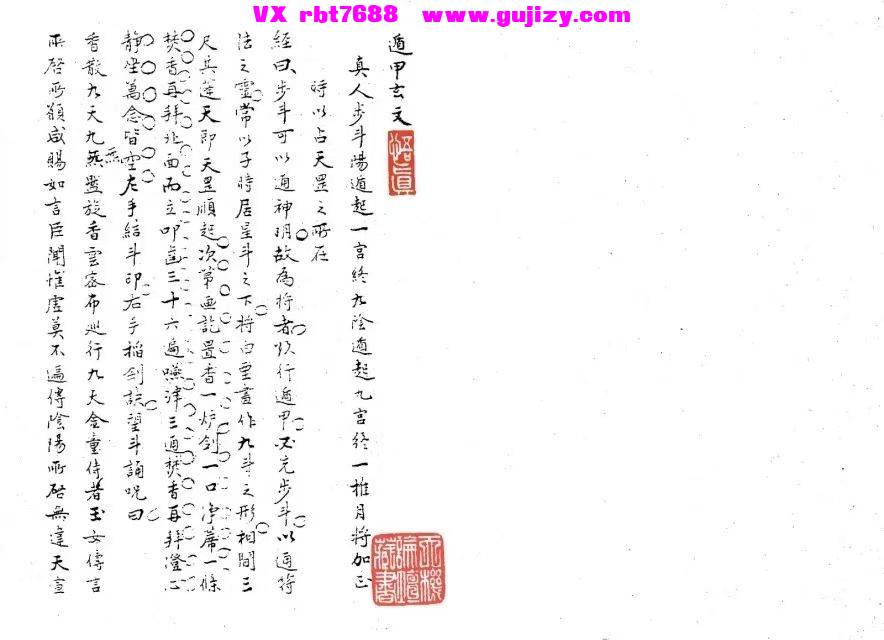 VX rbt7688 www.gujizy.com
遁甲玄文
悟真
真人步斗陽遁起一宮終九陰遁起九宮終一推月將加正
時以占天罡之所在
經曰步斗可以通神明故為將者欲行遁甲必先步斗以通符
法之靈常以子時居星斗之下將白堊畫作九斗之形相間三
尺其逆天即天罡順起次第畫訖置香一炉剑一口净蓆一條
焚香再拜北面而立叩齒三十六遍嚥津三通焚香再拜澄心
靜坐萬念皆空左手結斗印右手掐剑訣望斗誦呪曰
香散九天九炁盤旋香雲密布巡行九天金童侍者玉女傳言
炁
所啓所願咸賜如言臣聞惟虛莫不遍傳陰陽所啟無違天宣
天機論壇藏書